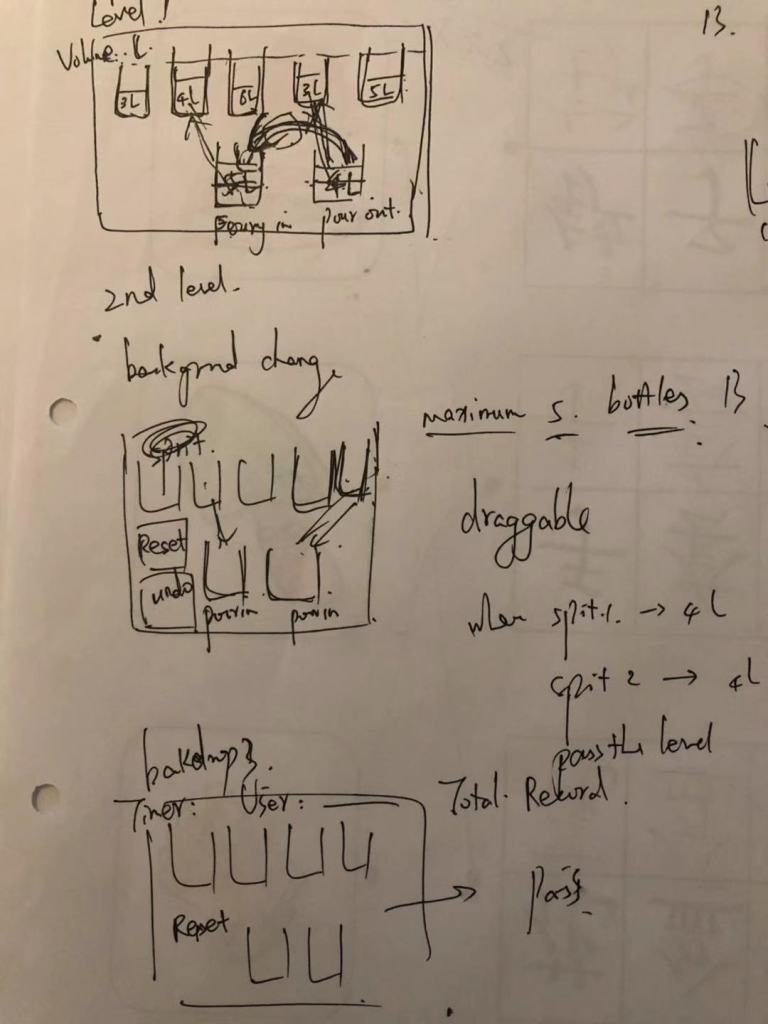 Level 1
Volume: L
3L 4L 6L 3L 5L
Pour out.
2nd level.
backgrnd change
maximum 5. bottles 13
split.
Reset
undo
pour in pour in
draggable
when split 1. → 4L
split 2 → 4L
pass the level
bakdrop 3.
Timer: User:
Total Record.
Reset
Pass.
13.